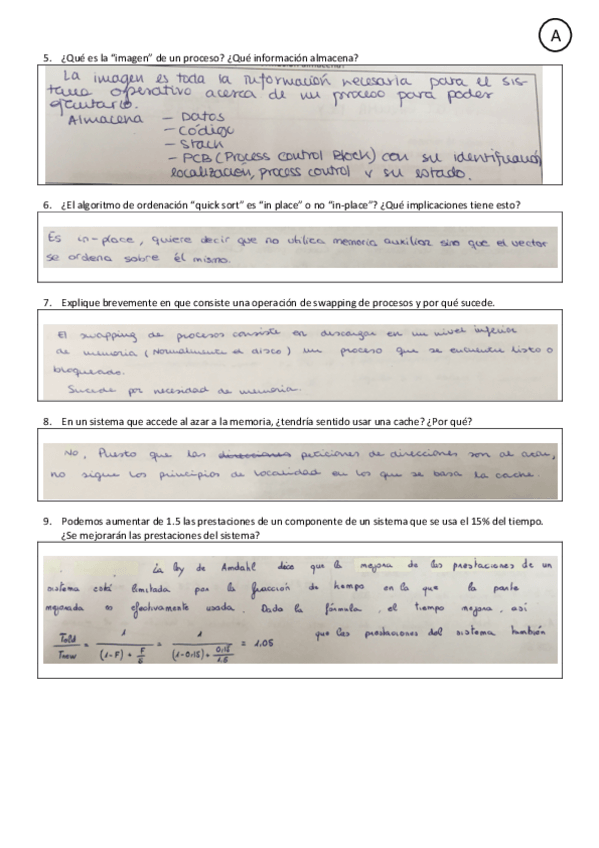 A
5. ¿Qué es la “imagen” de un proceso? ¿Qué información almacena?
La imagen es toda la información necesaria para el sis-
tema operativo acerca de un proceso para poder
ejecutarlo.
Almacena - Datos
- Código
- Stack
- PCB (Process Control Block) con su identificación
localización, process control y su estado.
6. ¿El algoritmo de ordenación “quick sort” es “in place” o no “in-place”? ¿Qué implicaciones tiene esto?
Es in-place, quiere decir que no utiliza memoria auxiliar sino que el vector
se ordena sobre él mismo.
7. Explique brevemente en que consiste una operación de swapping de procesos y por qué sucede.
El swapping de procesos consiste en descargar en un nivel inferior
de memoria (Normalmente el disco) un proceso que se encuentre listo o
bloqueado.
Sucede por necesidad de memoria.
8. En un sistema que accede al azar a la memoria, ¿tendría sentido usar una cache? ¿Por qué?
No, Puesto que las direcciones peticiones de direcciones son al azar,
no sigue los principios de localidad en los que se basa la cache.
9. Podemos aumentar de 1.5 las prestaciones de un componente de un sistema que se usa el 15% del tiempo.
¿Se mejorarán las prestaciones del sistema?
La ley de Amdahl dice que la mejora de las prestaciones de un
sistema está limitada por la fracción de tiempo en la que la parte
mejorada es efectivamente usada. Dada la fórmula, el tiempo mejora, así
que las prestaciones del sistema también
Told / Tnew = 1 / ((1-F) + F/G) = 1 / ((1-0.15) + 0.15/1.5) = 1.05